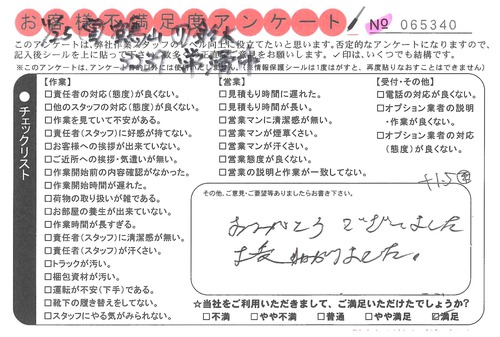 お客様不満足度アンケート
№ 065340
このアンケートは、弊社作業スタッフのレベル向上に役立てたいと思います。否定的なアンケートになりますので、
記入後シールを上に貼って
ご意見をお願いします。✓印は、いくつでも結構です。
【作業】
□責任者の対応(態度)が良くない。
□他のスタッフの対応(態度)が良くない。
□作業を見ていて不安がある。
□責任者(スタッフ)に好感が持てない。
□お客様への挨拶が出来ていない。
□ご近所への挨拶・気遣いが無い。
□作業開始前の内容確認がなかった。
□作業開始時間が遅れた。
□荷物の取り扱いが雑である。
□お部屋の養生が出来ていない。
□作業時間が長すぎる。
□責任者(スタッフ)に清潔感が無い。
□責任者(スタッフ)が汗くさい。
□トラックが汚い。
□梱包資材が汚い。
□運転が不安(下手)である。
□靴下の履き替えをしてない。
□スタッフにやる気がみられない。
【営業】
□見積もり時間に遅れた。
□見積もり時間が長い。
□営業マンに清潔感が無い。
□営業マンが煙草くさい。
□営業マンが汗くさい。
□営業態度が良くない。
□営業の説明と作業が一致してない。
【受付・その他】
□電話の対応が良くない。
□オプション業者の説明
・作業が良くない。
□オプション業者の対応
(態度)が良くない。
チェックリスト
その他、ご意見・ご要望等ありましたらお書き下さい。
ありがとうございました
大変助かりました。
☆当社をご利用いただきまして、ご満足いただけたでしょうか?
□不満 □やや不満 □普通 □やや満足 ☑満足